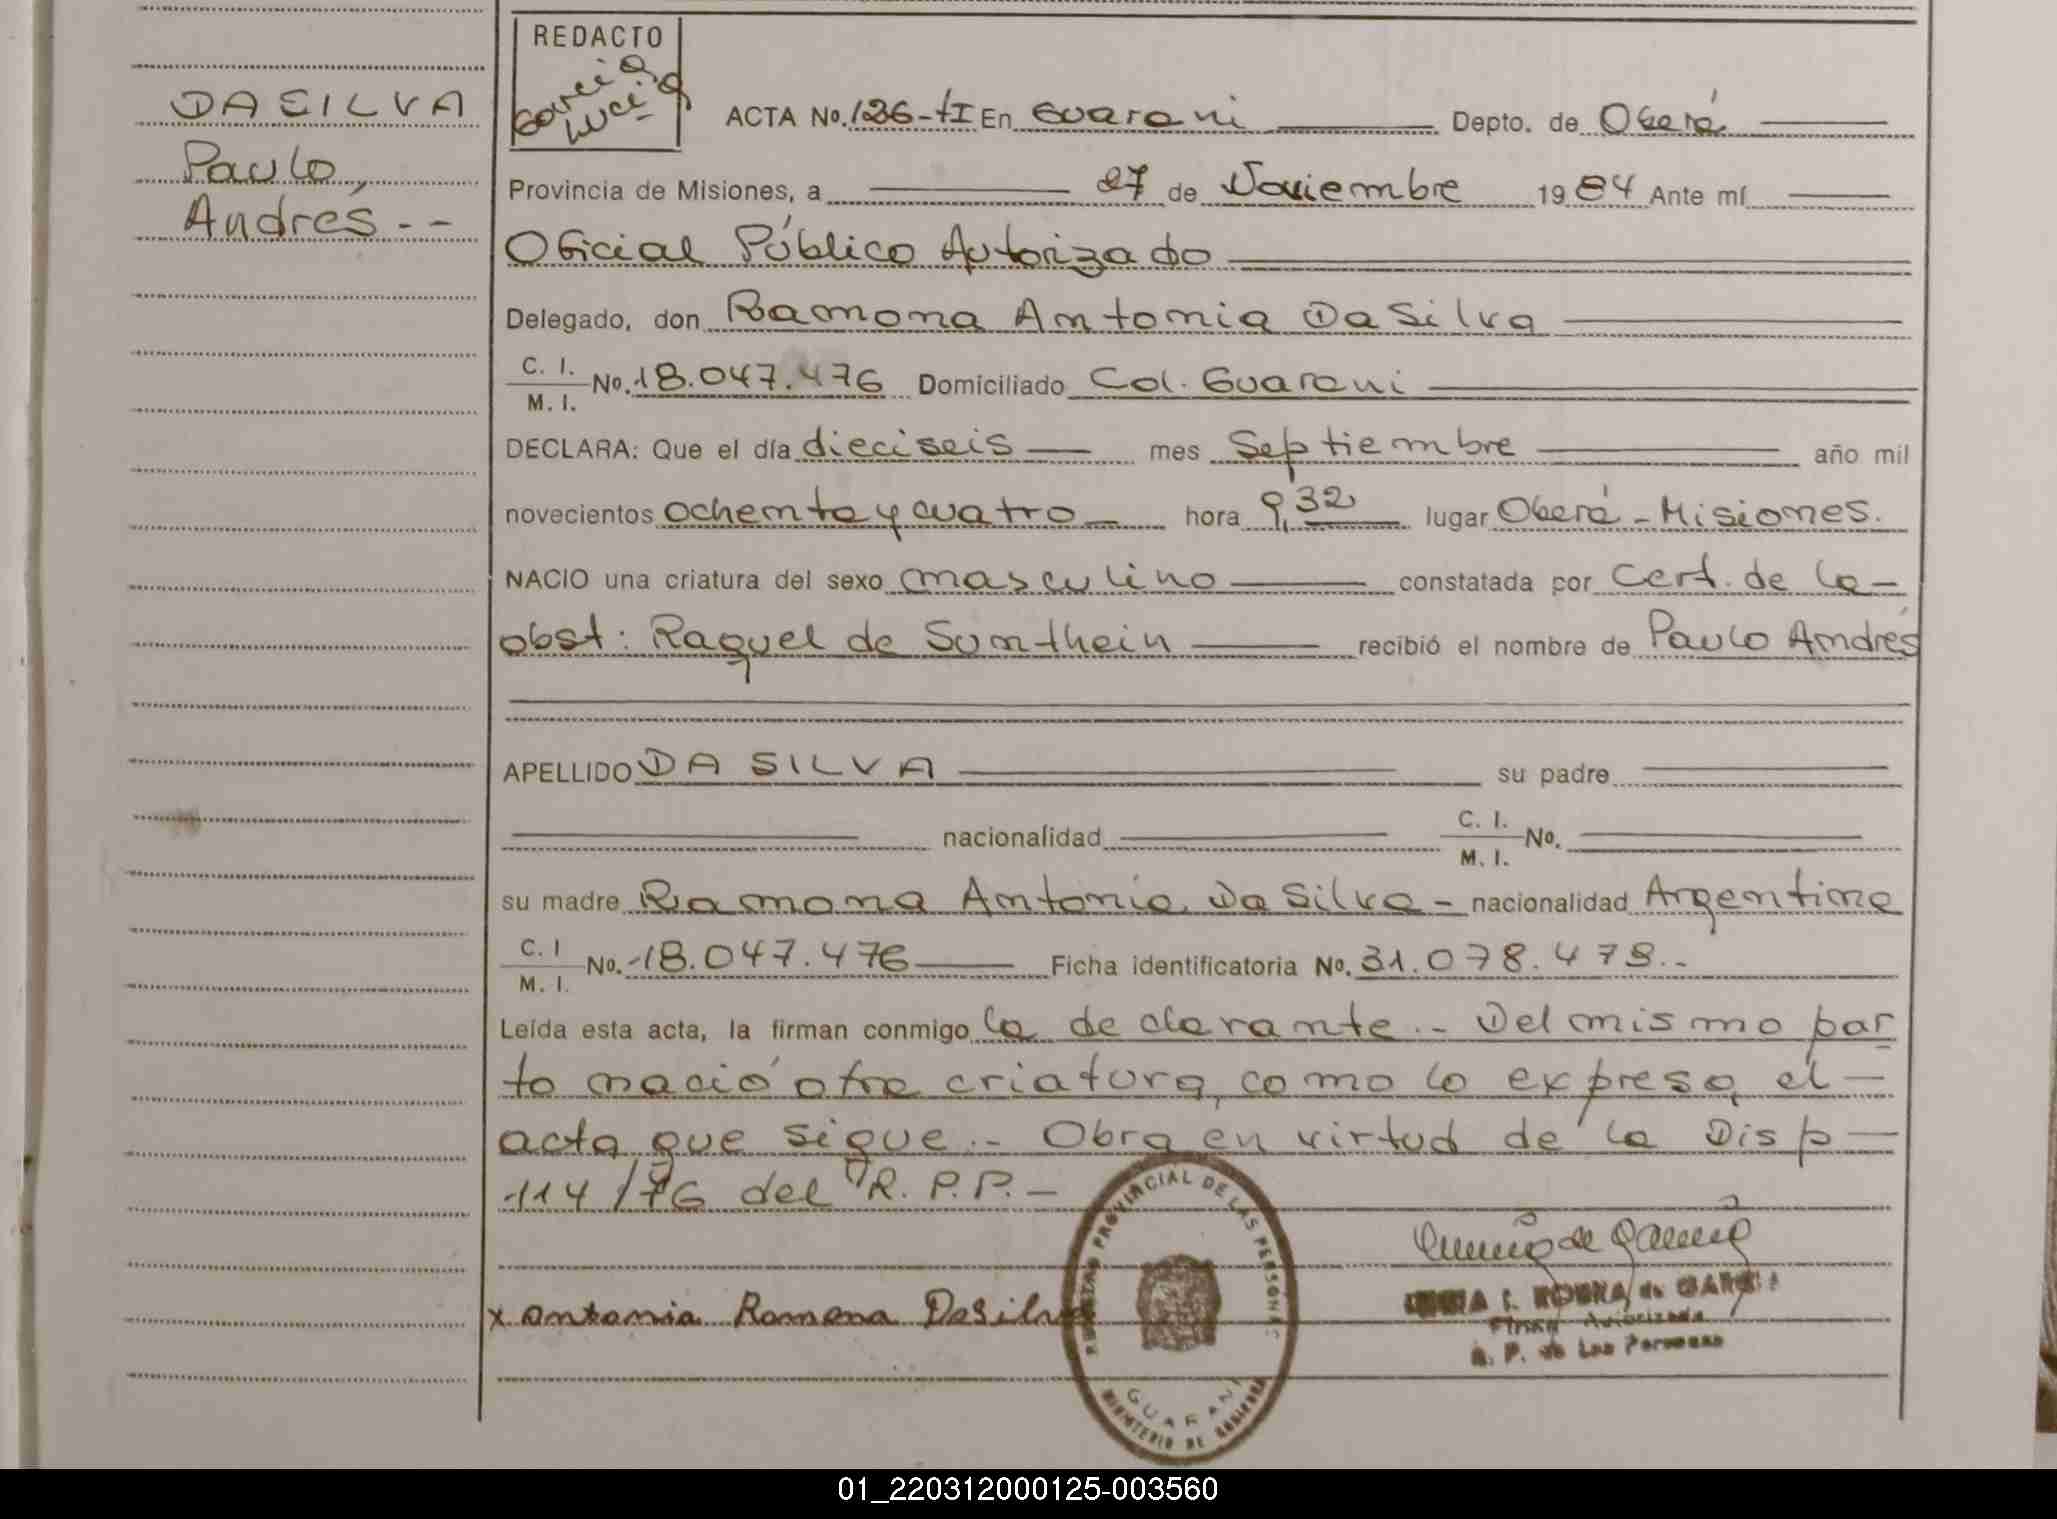 DA SILVA
Paulo
Andrés.--
REDACTO
García Lucía
ACTA No. 126-tI En Guaraní Depto. de Oberá
Provincia de Misiones, a 27 de Noviembre 1984 Ante mí
Oficial Público Autorizado
Delegado, don Ramona Antonia Da Silva
C. I. / M. I. No. 18.047.476 Domiciliado Col. Guarani
DECLARA: Que el día dieciseis mes Septiembre año mil
novecientos ochenta y cuatro hora 9,32 lugar Oberá - Misiones.
NACIO una criatura del sexo masculino constatada por Cert. de la
obst: Raquel de Sumthein recibió el nombre de Paulo Andrés
APELLIDO DA SILVA su padre
nacionalidad C. I. / M. I. No.
su madre Ramona Antonia Da Silva - nacionalidad Argentina
C. I / M. I. No. 18.047.476 Ficha identificatoria No. 31.078.478.-
Leída esta acta, la firman conmigo la declarante.- Del mismo par
to nació otra criatura, como lo expresa el
acta que sigue.- Obra en virtud de la Disp
114/76 del R.P.P.-
x Antonia Ramona Dasilva
REGISTRO PROVINCIAL DE LAS PERSONAS
GUARANI
MINISTERIO DE GOBIERNO
de GARCIA
Firma Autorizada
R. P. de Las Personas
01_220312000125-003560